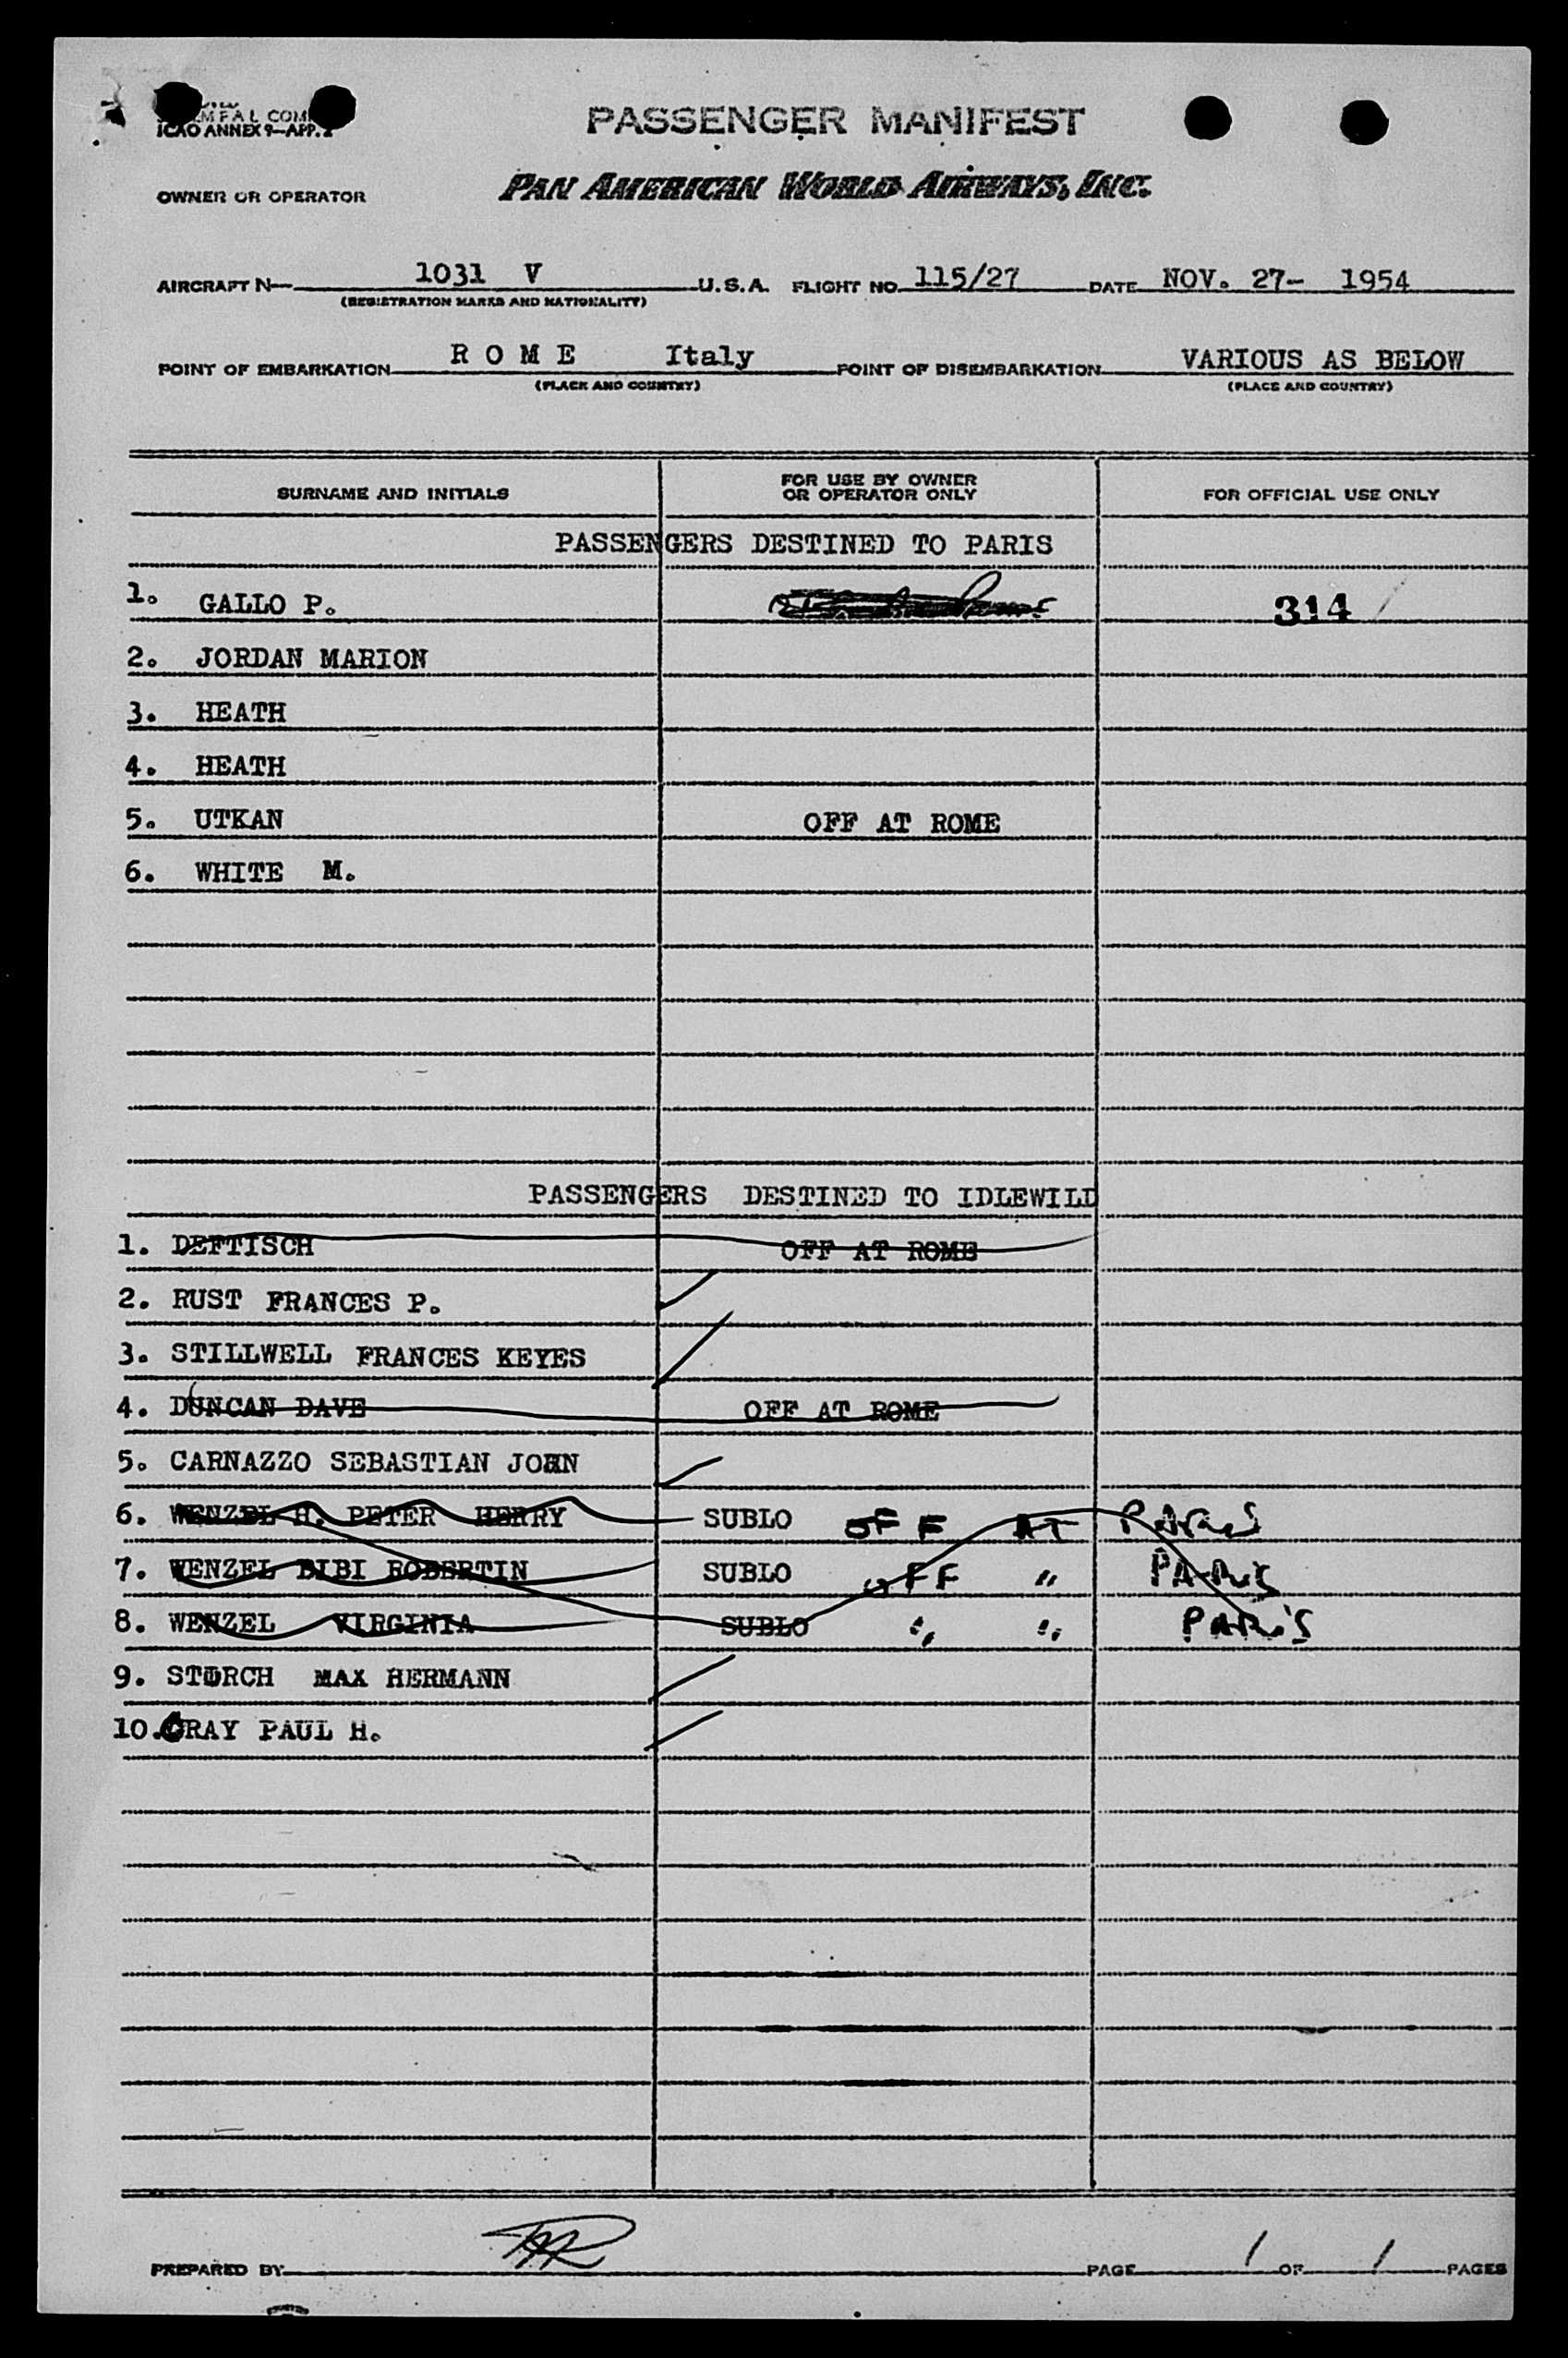 ICAO ANNEX 9—APP. 2
PASSENGER MANIFEST
OWNER OR OPERATOR PAN AMERICAN WORLD AIRWAYS, INC.
AIRCRAFT N— 1031 V U.S.A. FLIGHT NO. 115/27 DATE NOV. 27- 1954
(REGISTRATION MARKS AND NATIONALITY)
POINT OF EMBARKATION R O M E Italy POINT OF DISEMBARKATION VARIOUS AS BELOW
(PLACE AND COUNTRY) (PLACE AND COUNTRY)
SURNAME AND INITIALS FOR USE BY OWNER OR OPERATOR ONLY FOR OFFICIAL USE ONLY
PASSENGERS DESTINED TO PARIS
1. GALLO P. 314
2. JORDAN MARION
3. HEATH
4. HEATH
5. UTKAN OFF AT ROME
6. WHITE M.
PASSENGERS DESTINED TO IDLEWILD
1. DEFTISCH OFF AT ROME
2. RUST FRANCES P.
3. STILLWELL FRANCES KEYES
4. DUNCAN DAVE OFF AT ROME
5. CARNAZZO SEBASTIAN JOHN
6. WENZEL H. PETER HENRY SUBLO OFF AT PARIS
7. WENZEL BIBI ROBERTIN SUBLO OFF " PARIS
8. WENZEL VIRGINIA SUBLO " " PARIS
9. STORCH MAX HERMANN
10. GRAY PAUL H.
PREPARED BY PAGE 1 OF 1 PAGES